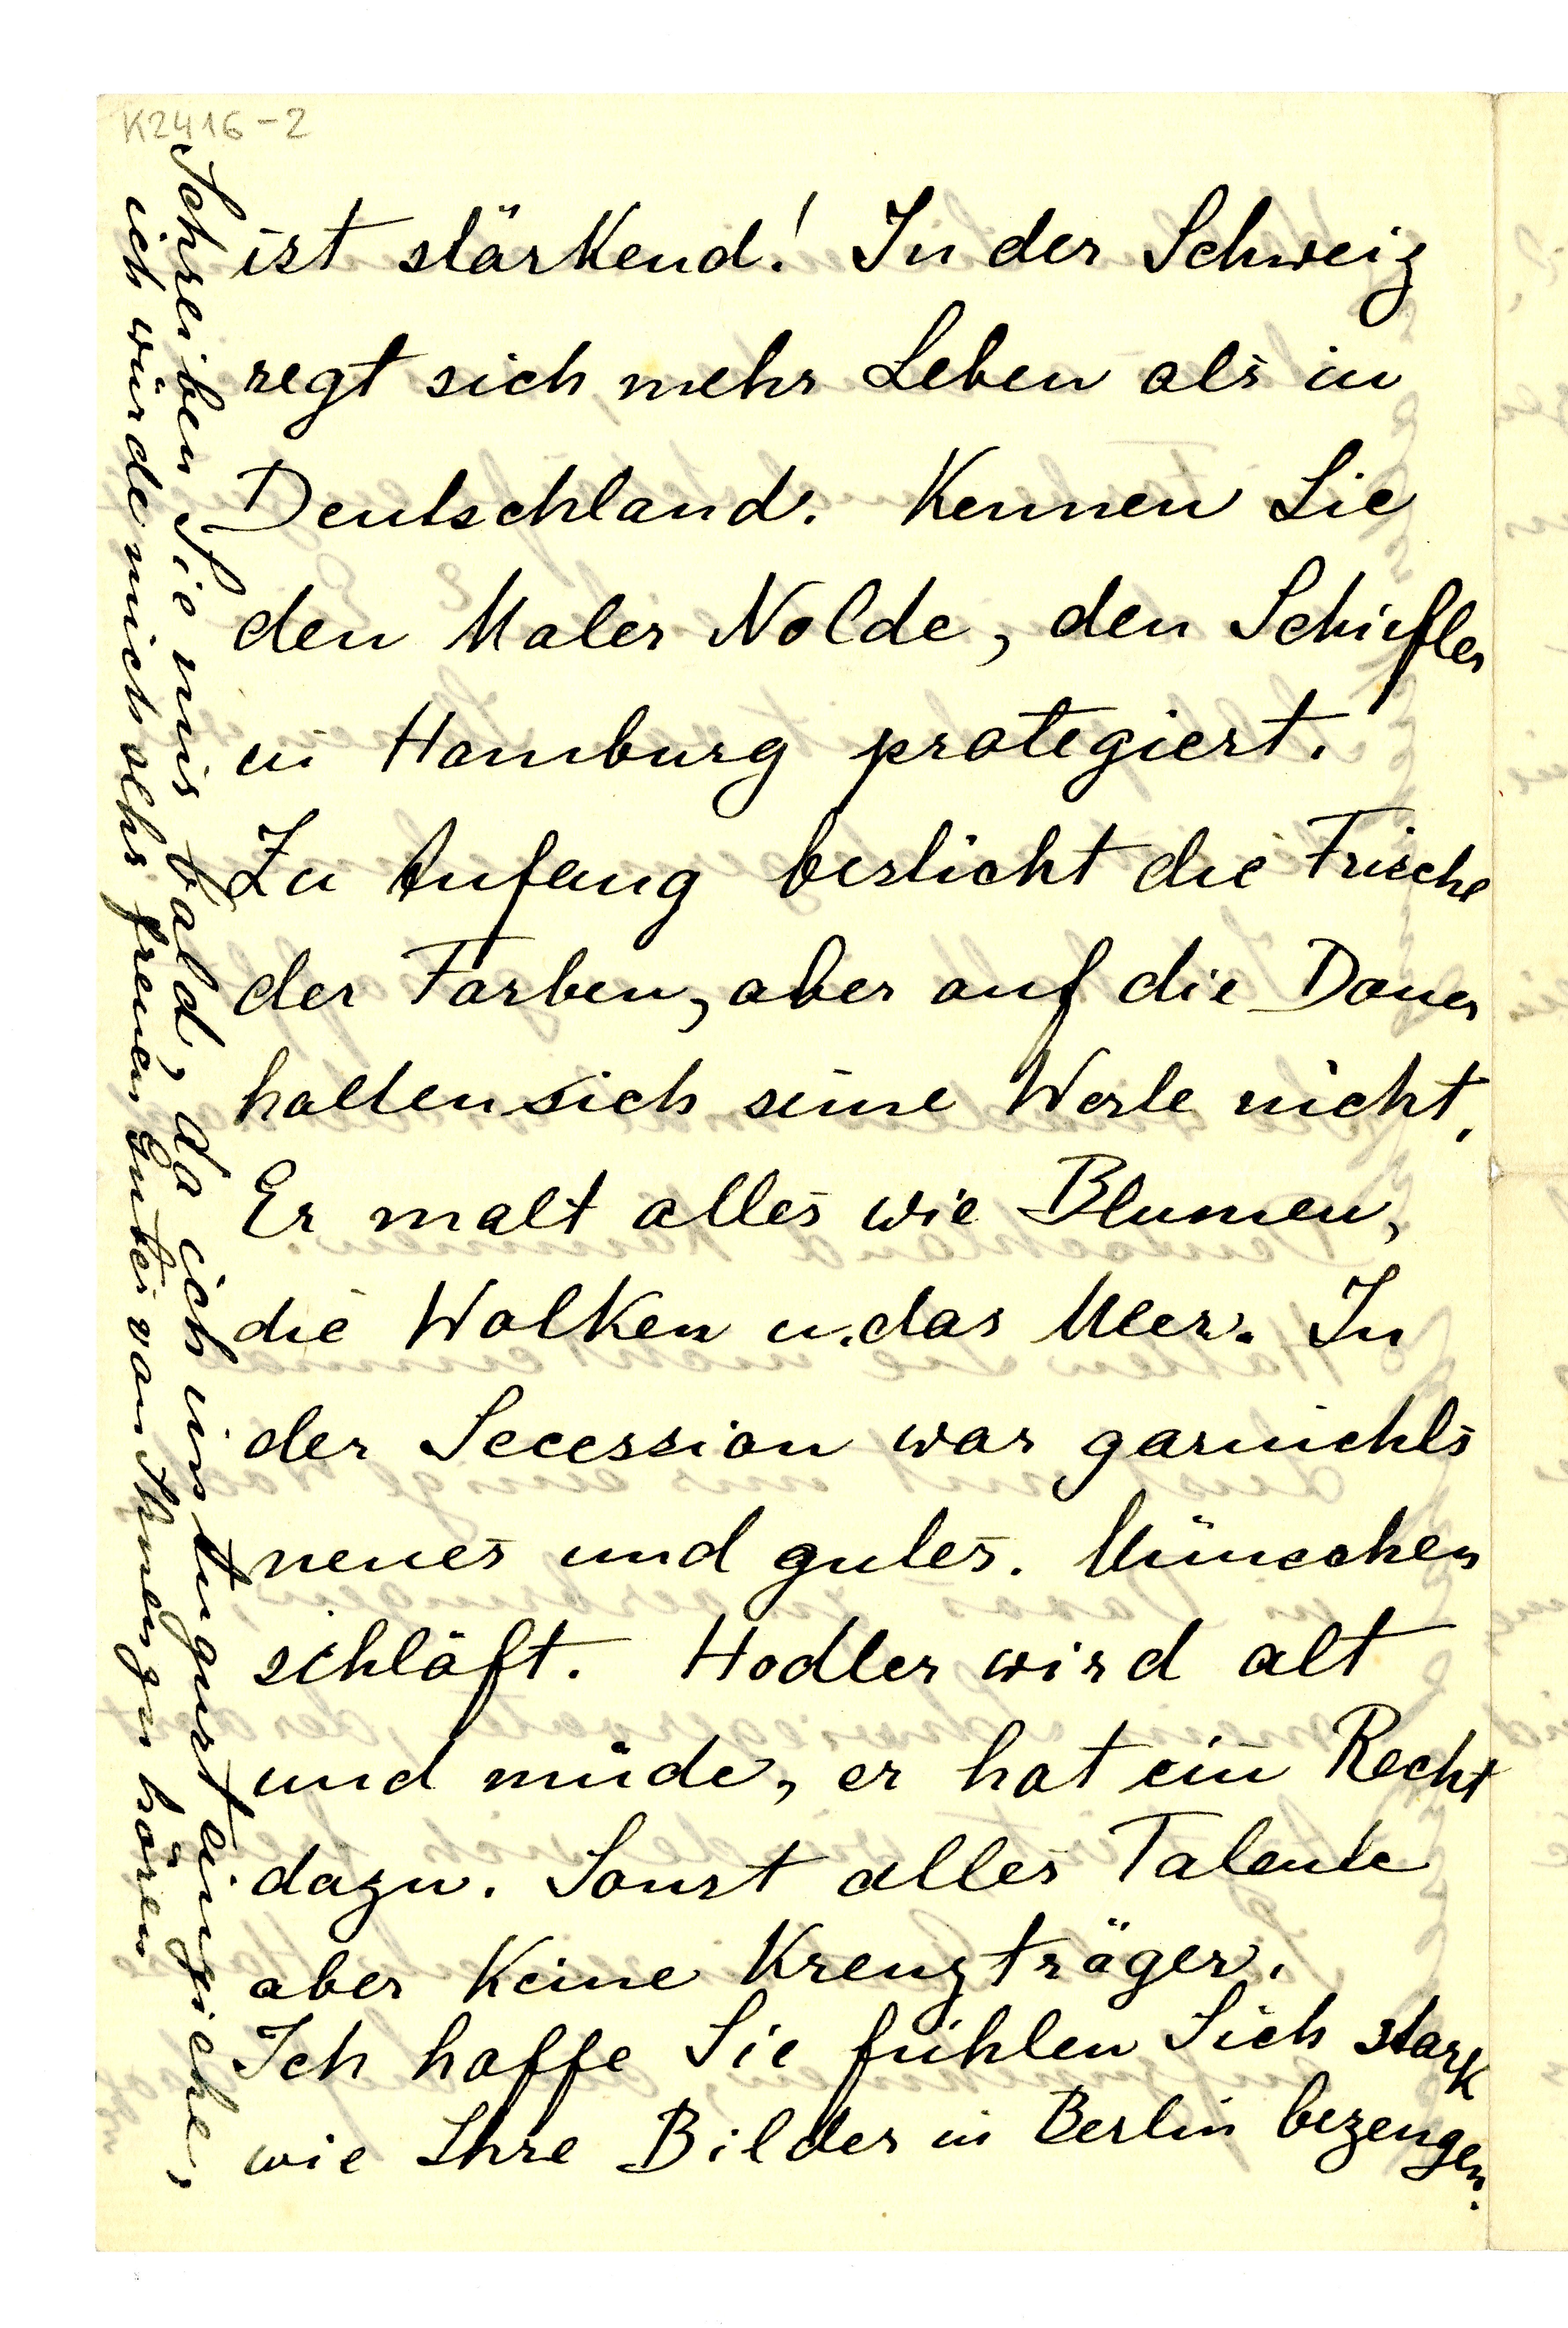 K2416-2
ist stärkend! In der Schweiz
regt sich mehr Leben als in
Deutschland. Kennen Sie
den Maler Nolde, den Schiefler
in Hamburg protegiert.
Zu Anfang besticht die Frische
der Farben, aber auf die Dauer
halten sich seine Werke nicht.
Er malt alles wie Blumen,
die Wolken u. das Meer. In
der Secession war garnichts
neues und gutes. München
schläft. Hodler wird alt
und müde, er hat ein Recht
dazu. Sonst alles Talente
aber keine Kreuzträger.
Ich hoffe Sie fühlen Sich stark
wie Ihre Bilder in Berlin bezeugen.
Schreiben Sie mir bald, da ich im August einziehe,
ich würde mich sehr freuen Gutes von Ihnen zu hören